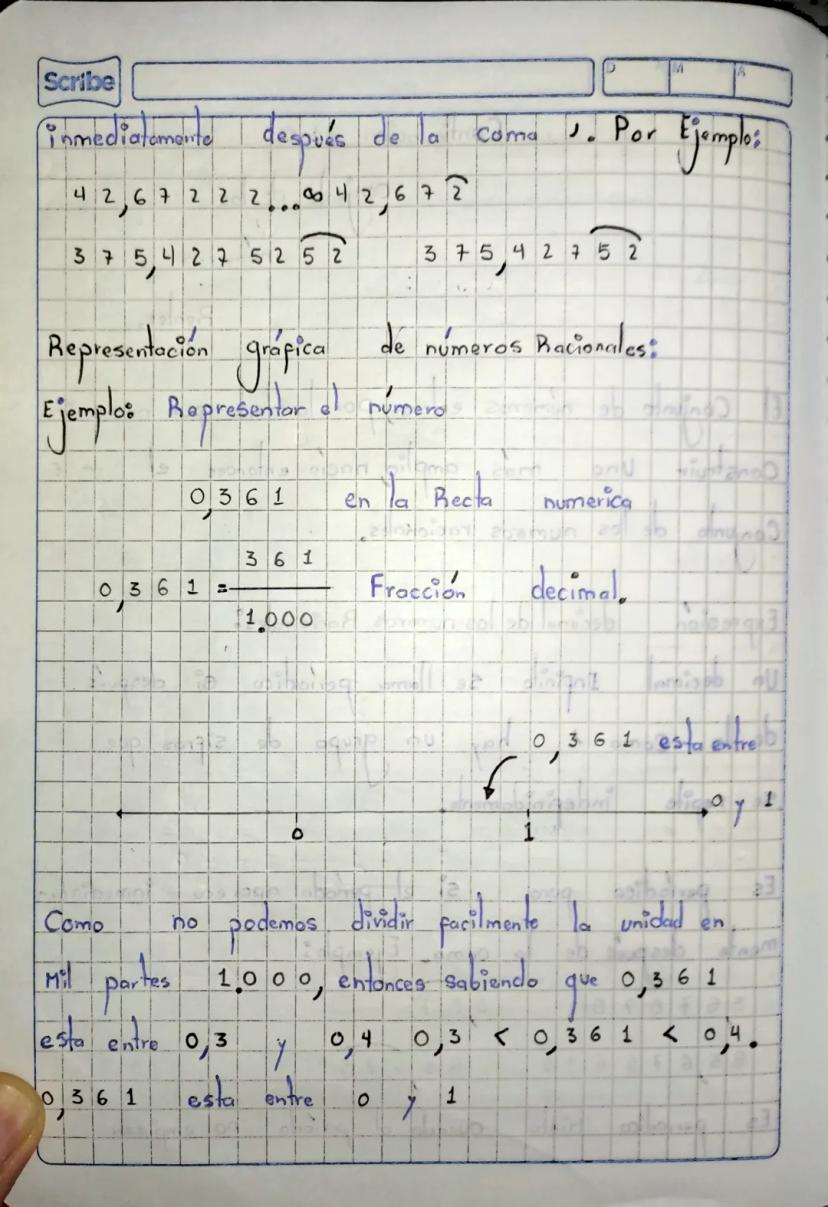 Scribe
D M A
inmediatamente después de la coma ,. Por Ejemplo:
42,67222...∞ 42,672
375,4275252 375,42752
Representación gráfica de números Racionales:
Ejemplo: Representar el número
0,361 en la Recta numerica
361
0,361 = Fracción decimal.
1.000
0,361 esta entre
0 y 1
0 1
Como no podemos dividir facilmente la unidad en
Mil partes 1.000, entonces sabiendo que 0,361
esta entre 0,3 y 0,4 0,3 < 0,361 < 0,4.
0,361 esta entre 0 y 1